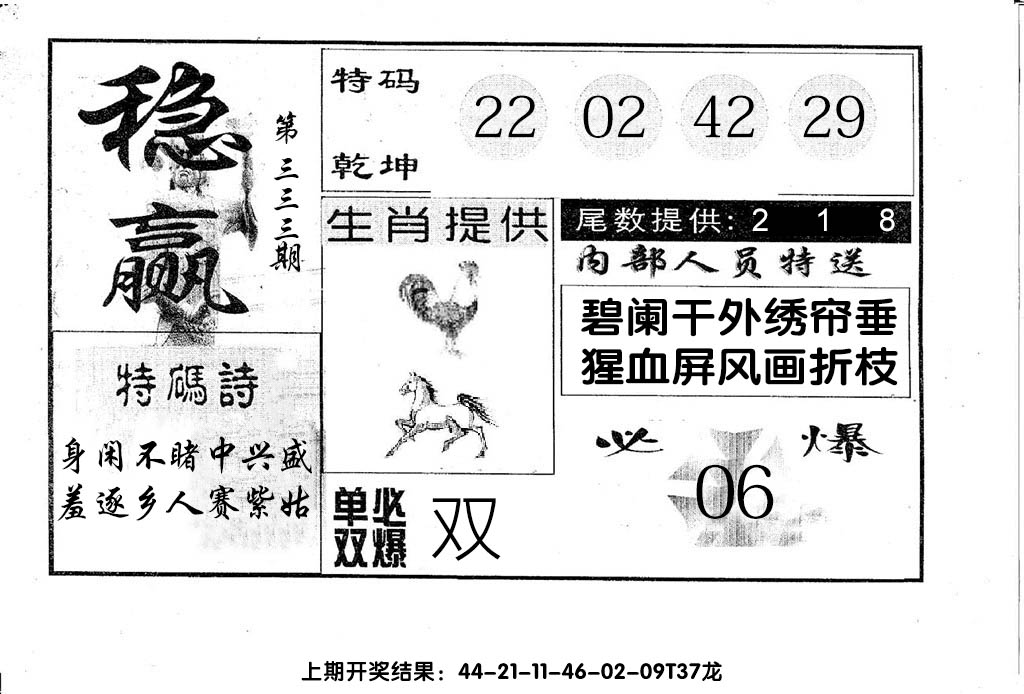 稳赢
第三三三期
特码
乾坤
22 02 42 29
生肖提供
尾数提供: 2 1 8
内部人员特送
碧阑干外绣帘垂
猩血屏风画折枝
特碼詩
身闲不睹中兴盛
羞逐乡人赛紫姑
单双
必爆
双
必爆
06
上期开奖结果：44-21-11-46-02-09T37龙